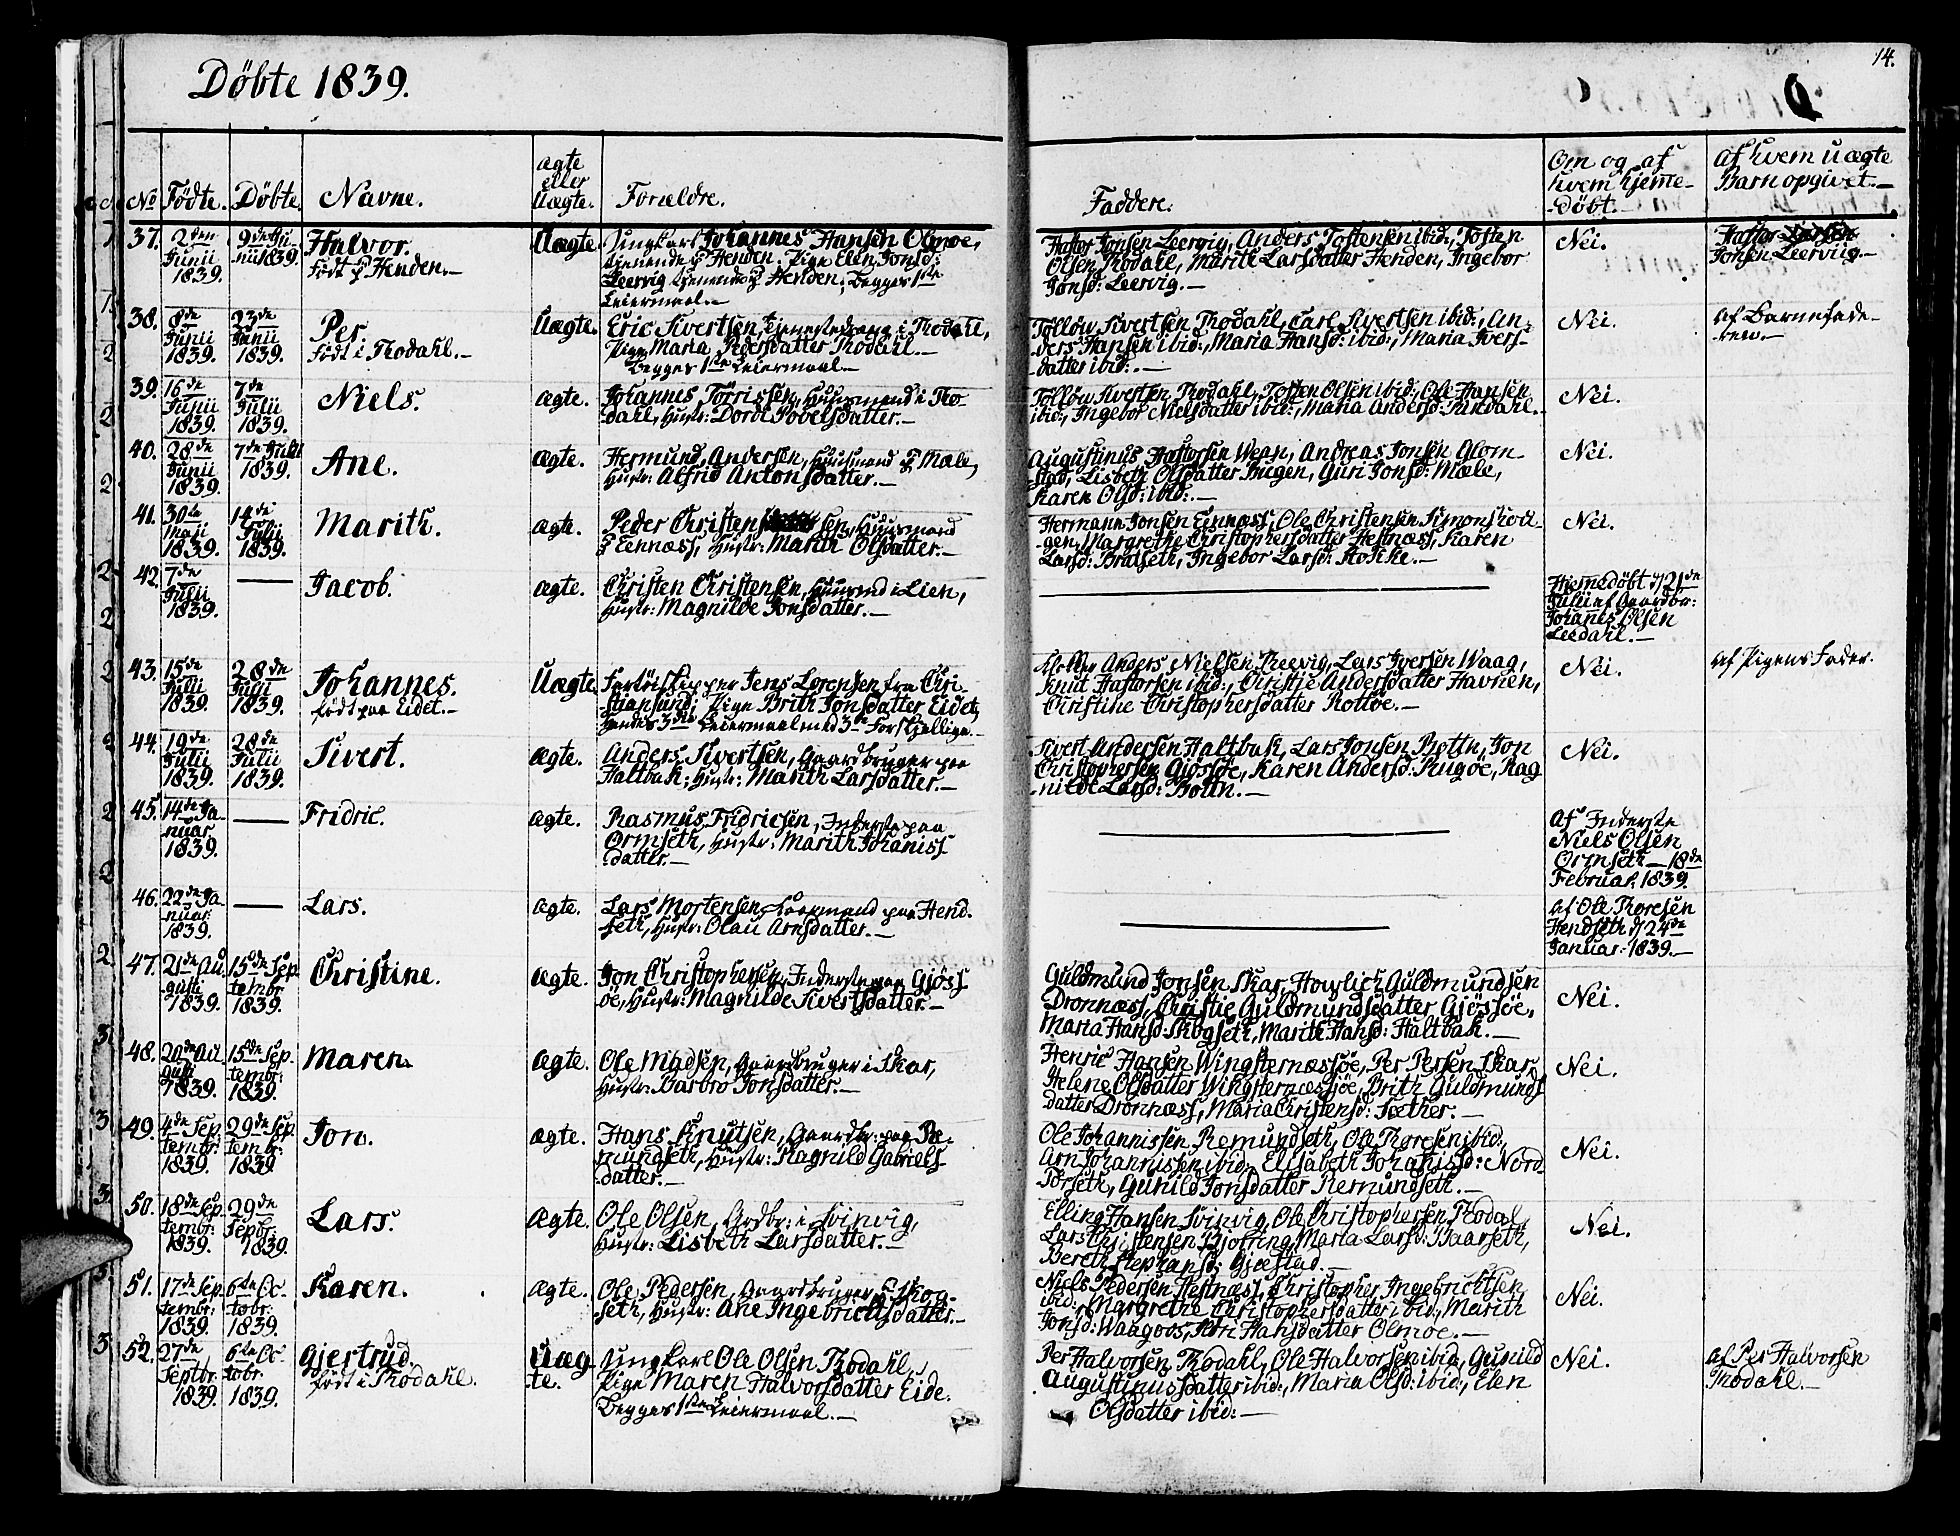 Döbte 1839.
14.
No Födte. Döbte. Navne. ægte eller Uægte. Forældre. Faddere. Om og af hvem hjemedöbt. af hvem uægte Barn opgivet.
37. 2den Junii 1839. 9de Junii 1839. Halvor. födt p Henden. Uægte. Ungkarl Johannes Hansen Olmoe,
tjenende p Henden. Pige Elen Jonsd:
Leervig tjenende p Henden; Begges 1ste
Leiermaal.
Haftor Jonsen Leervig, Anders Tostensen ibid:, Tosten
Olsen Thodahl, Marith Larsdatter Henden, Ingebor
Jonsd: Leervig.
Nei.
Haftor Jonsen Leerviig.
38. 8de Junii 1839. 23de Junii 1839. Per. födt i Thodahl. Uægte. Eric Sivertsen, tjenestedreng i Thodahl,
Pige Maria Pedersdatter Thodahl.
Begges 1ste Leiermaal.
Tolløv Sivertsen Thodahl, Carl Sivertsen ibid:, An-
ders Hansen ibid:, Maria Hansd: ibid:, Maria Ivers-
datter ibid:.
Nei.
af Barnefade-
ren.
39. 16de Junii 1839. 7de Julii 1839. Niels. ægte. Johannes Törrissen, Huusmand i Tho-
dahl, Hustr: Dordi Povelsdatter.
Tolløv Sivertsen Thodahl, Tosten Olsen ibid:, Ole Hansen
ibid:, Ingebor Nielsdatter ibid:, Maria Andersd:
Nei.
40. 28de Junii 1839. 7de Julii 1839. Ane. ægte. Hermund Andersen, Huusmand p Mæle,
Hustr: Alfrid Antonsdatter.
Augustinus Haftorsen Wean, Andreas Jonsen Glom-
stad, Lisbeth Olsdatter Bugen, Guri Jonsd: Mæle,
Karen Olsd: ibid:.
Nei.
41. 30te Maji 1839. 14de Julii 1839. Marith. ægte. Peder Christensen, Huusmand
p Eennæss, Hustr: Marith Olsdatter.
Hermann Jonsen Eennæss, Ole Christensen Simonskou-
gen, Margrethe Christophersdatter Hestnæss, Karen
Larsd: Bratseth, Ingebor Larsd:
Nei.
42. 7de Julii 1839. Jacob. ægte. Christen Christensen, Huusmd i Lien,
Hustr: Magnilde Jonsdatter.
Hjemedöbt d 21de
Julii af Gaardbr:
Johanes Olsen
Leedahl.
43. 15de Julii 1839. 28de Julii 1839. Johannes. födt paa Eidet. Uægte. Jens Lorensen fra Chri-
stiansund; Pige Brith Jonsdatter Eidet,
hendes 3die Leiermaal med 3de Forskjellige.
Anders Nielsen Reevig, Lars Iversen Waag,
Knut Haftorsen ibid:, Christje Andersdatter Havnen,
Christine Christophersdatter Rottöe.
Nei.
af Pigens Fader.
44. 19de Julii 1839. 28de Julii 1839. Sivert. ægte. Anders Sivertsen, Gaardbruger paa
Haltbak, Hustr: Marith Larsdatter.
Sivert Andersen Haltbak, Lars Jonsen Botn, Jon
Christophersen Gjössöe, Karen Andersd: Rugöe, Rag-
nilde Larsd: Botn.
Nei.
45. 14de Januar 1839. Fridric. ægte. Rasmus Fridricsen, Inderste paa
Ormseth, Hustr: Marith Johaniss
datter.
af Inderste
Niels Olsen
Ormseth 18de
Februar, 1839.
46. 22de Januar 1839. Lars. ægte. Lars Mortensen Huusmand paa Hend-
seth, Hustr: Olau Arnsdatter.
af Ole Thoresen
Hendseth d 24de
Januar: 1839.
47. 21de Augusti 1839. 15de Septembr: 1839. Christine. ægte. Jon Christophersen, Inderste paa Gjöss
öe, Hustr: Magnilde Sivertsdatter.
Guldmund Jonsen Skar, Howlich Guldmundsen
Dronnæss, Christie Guldmundsdatter Gjössöe,
Maria Hansd: Skogseth, Marith Hansd: Haltbak.
Nei.
48. 20de Augusti 1839. 15de Septembr: 1839. Maren. ægte. Ole Madsen, Gaardbruger i Skar,
Hustr: Barbro Jonsdatter.
Henric Hansen Wingsternæssöe, Per Persen Skar,
Helene Olsdatter Wingsternæssöe, Brith Guldmunds
datter Dronnæss, Maria Christensd: Sæther.
Nei.
49. 4de Septembr: 1839. 29de Septembr: 1839. Jon. ægte. Hans Knutsen, Gaardbr: paa Re-
mundseth, Hustr: Ragnild Gabriels
datter.
Ole Johannissen Remundseth, Ole Thoresen ibid:,
Arn Johannissen ibid:, Elisabeth Johanisd: Nord
Torseth, Gunild Jonsdatter Remundseth.
Nei.
50. 18de Septembr: 1839. 29de Sepbr: 1839. Lars. ægte. Ole Olsen, Grdbr: i Svinvig,
Hustr: Lisbeth Larsdatter.
Elling Hansen Svinvig, Ole Christophersen Thodal,
Lars Christensen Bjofring, Maria Larsd: Baarseth,
Bereth Stephansd: Gjæstad.
Nei.
51. 17de Septembr: 1839. 6te Octobr. 1839. Karen. ægte. Ole Pedersen, Gaardbruger p Skog-
seth, Hustr: Ane Ingebrichtsdatter.
Niels Pedersen Hestnæss, Christopher Ingebrichtsen
ibid:, Margrethe Christophersdatter ibid:, Marith
Jonsd: Waagoos, Kari Hansdatter Olmoe.
Nei.
52. 27de Septbr. 1839. 6te Octobr. 1839. Gjertrud. födt i Thodahl. Uægte. Ungkarl Ole Olsen Thodahl,
Pige Maren Halvorsdatter Eide.
Begges 1ste Leiermaal.
Per Halvorsen Thodahl, Ole Halvorsen ibid:, Gunild
Augustinusdatter ibid:, Maria Olsd: ibid:, Elen
Olsdatter ibid:
Nei.
af Per Halvorsen
Thodahl.